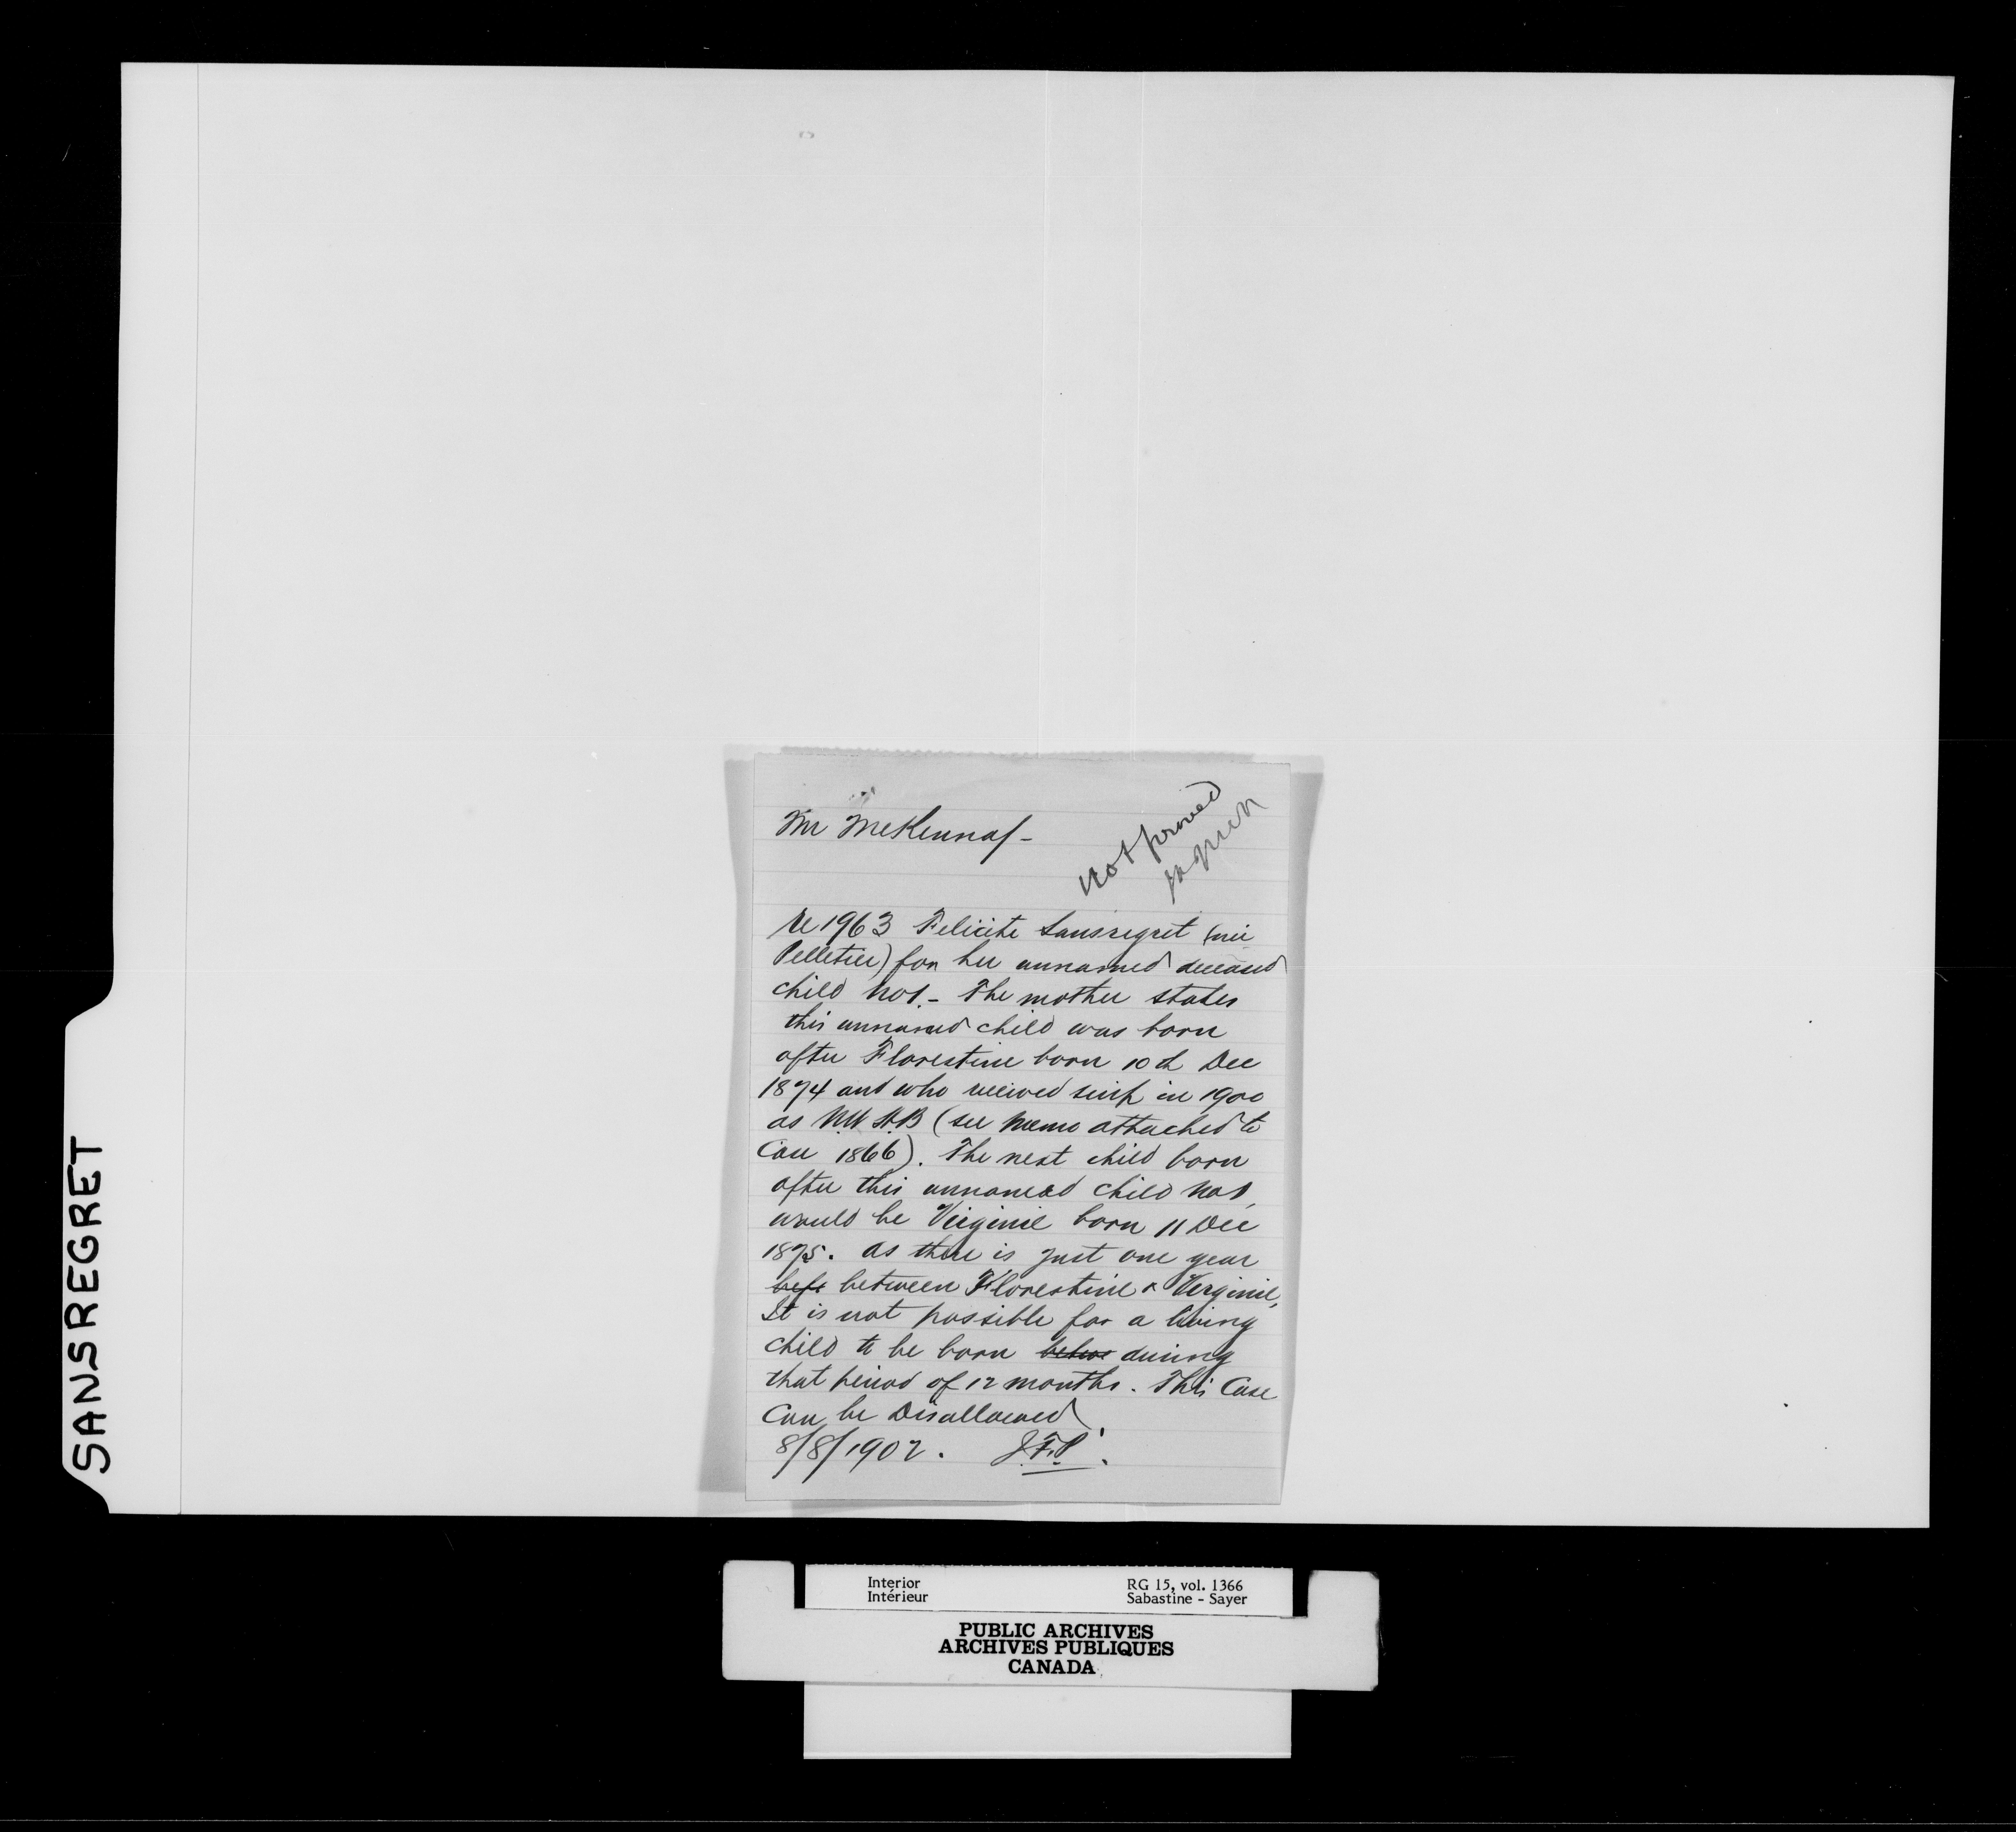 Mr McKenna -
not proved
Re 1963 Felicite Sansregret (née
Pelletier) for her unnamed deceased
child No 1. - The mother states
this unnamed child was born
after Florestine born 10th Dec
1874 and who received scrip in 1900
as N.W.H.B (see memo attached to
Case 1866). The next child born
after this unnamed child No 1,
would be Virginie born 11 Dec
1875. As there is just one year
befe between Florestine & Virginie,
It is not possible for a living
child to be born during
that period of 12 months. This Case
Can be Disallowed.
8/8/1902. J.F.P.
SANSREGRET
Interior
Intérieur
RG 15, vol. 1366
Sabastine - Sayer
PUBLIC ARCHIVES
ARCHIVES PUBLIQUES
CANADA